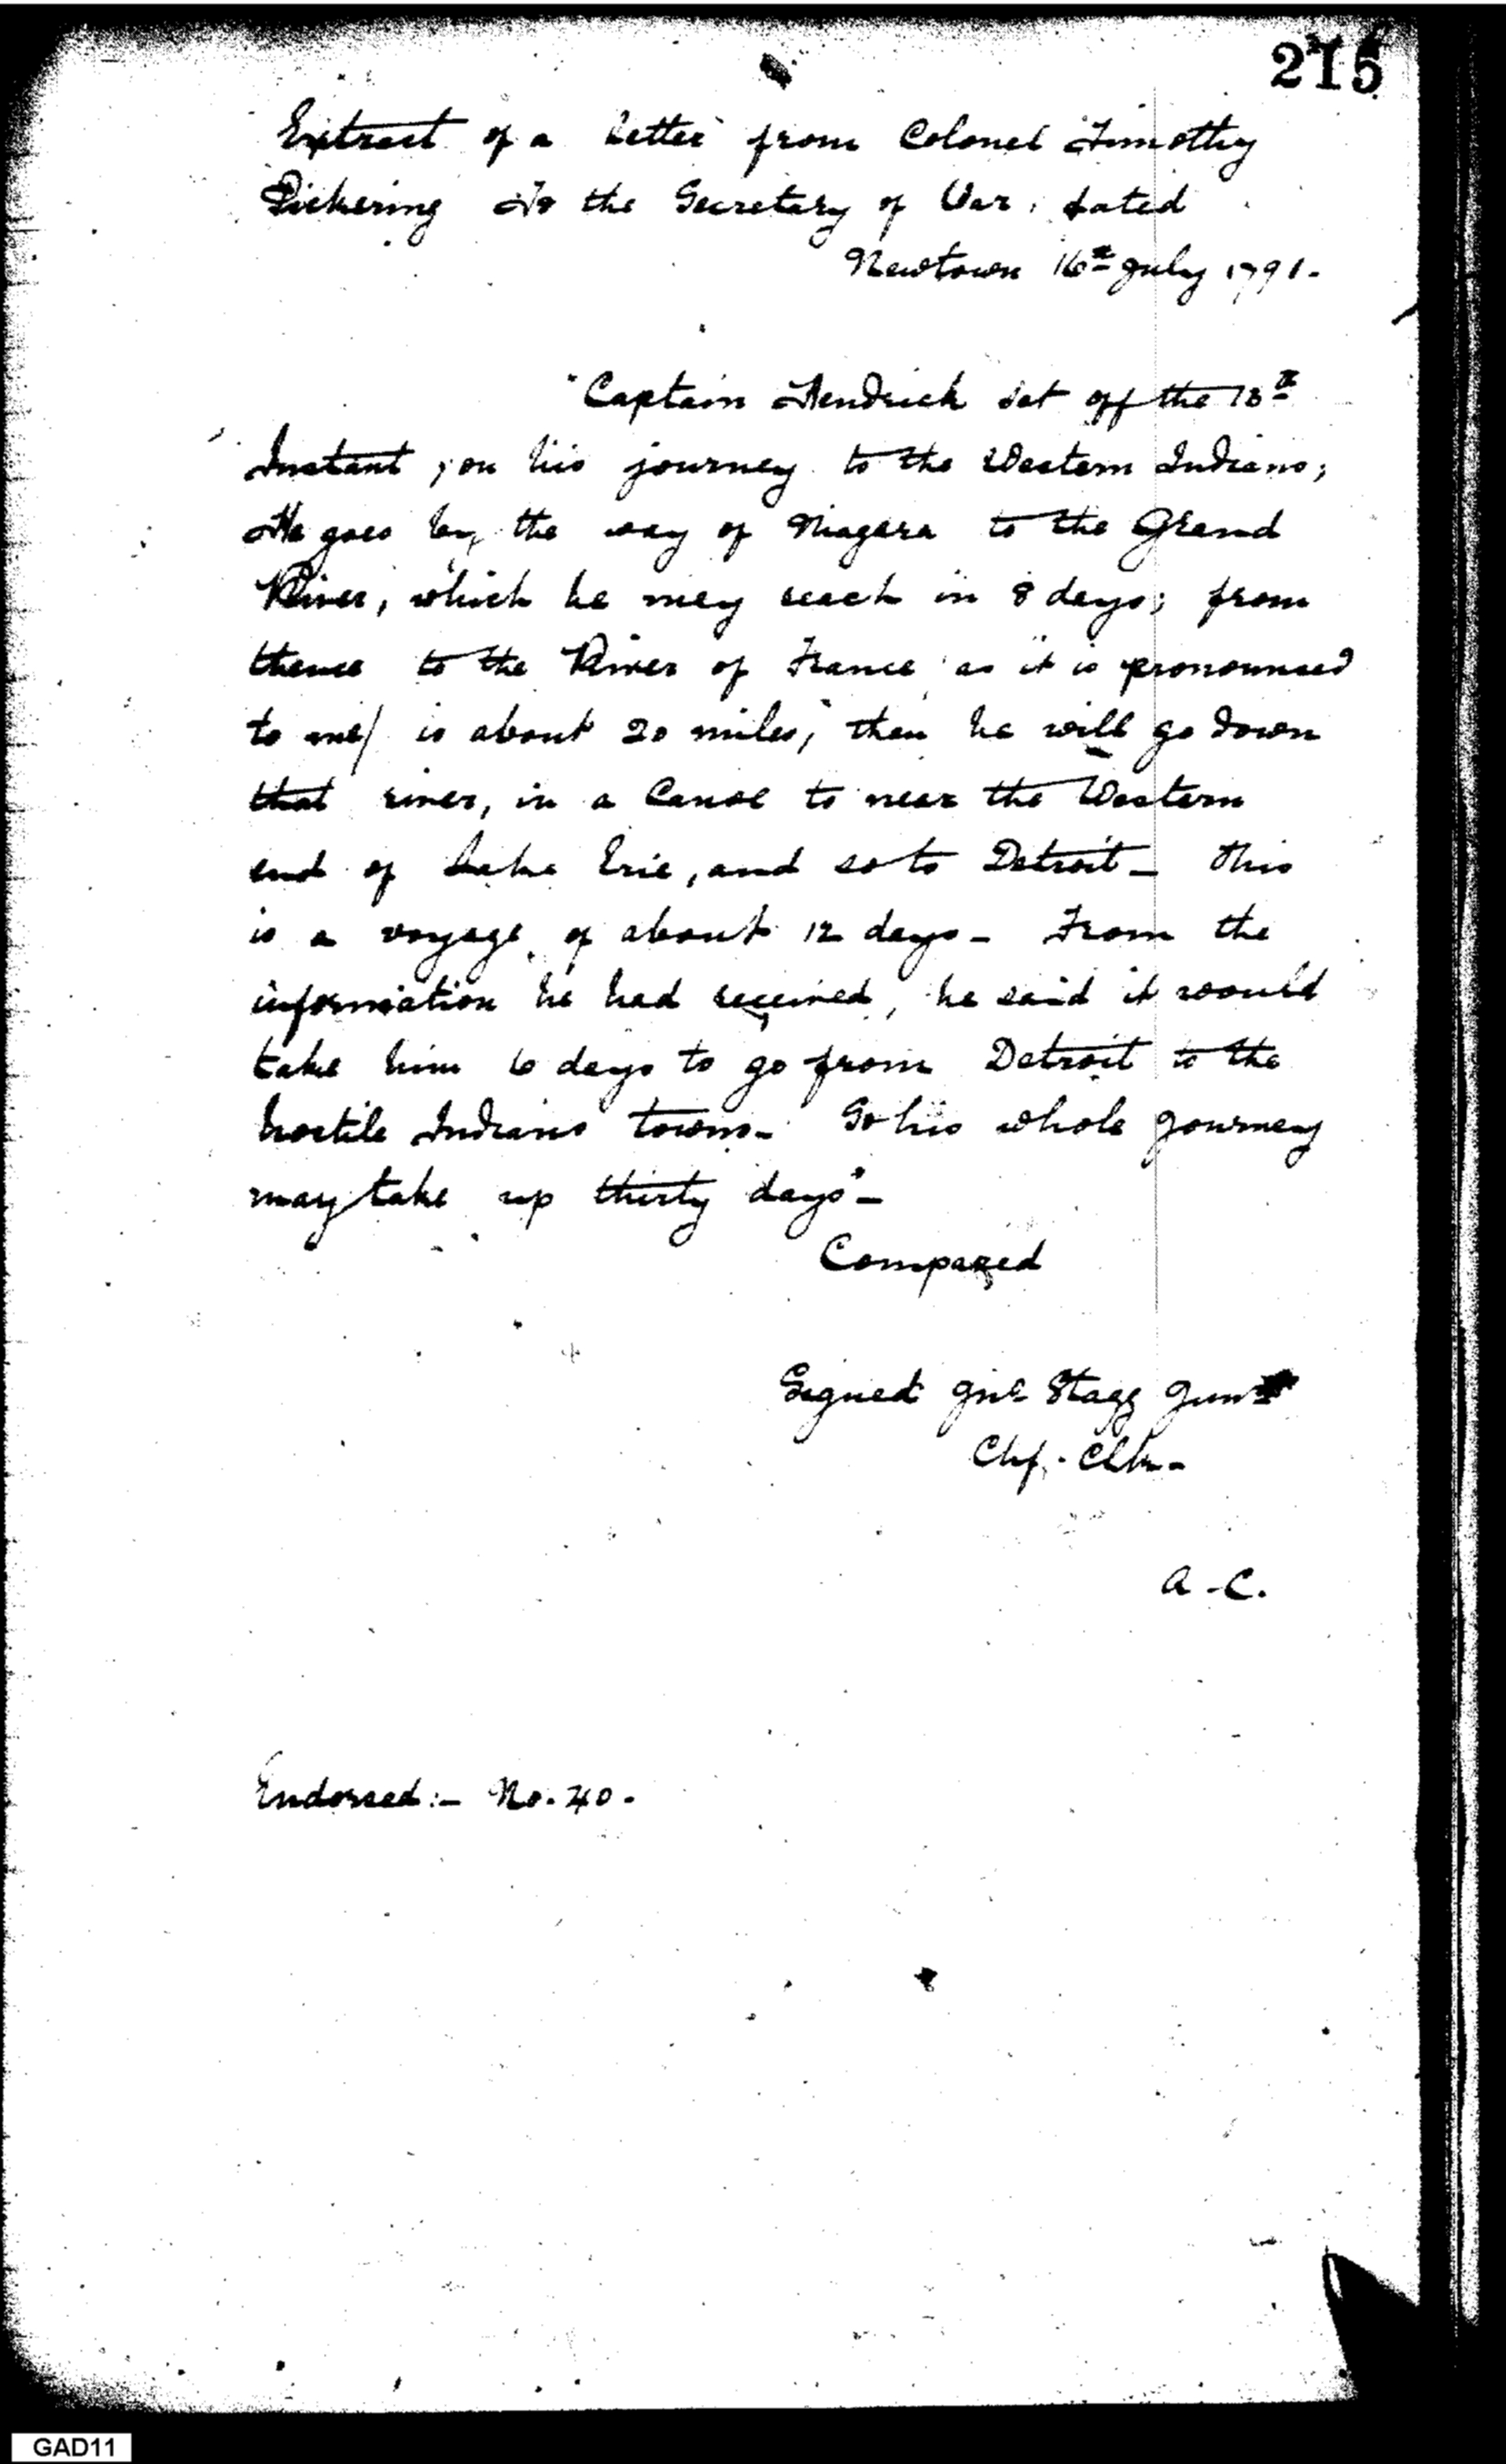 275
Extract of a letter from Colonel Timothy
Pickering To the Secretary of War, dated
Newtown 16th July 1791.
"Captain Hendrick set off the 13th
Instant, on his journey to the Western Indians;
He goes by the way of Niagara to the Grand
River, which he may reach in 8 days; from
thence to the River of France as it is pronounced
to me/ is about 20 miles; then he will go down
that river, in a Canoe to near the Western
end of Lake Erie, and so to Detroit – this
is a voyage of about 12 days – From the
information he had received, he said it would
take him 6 days to go from Detroit to the
hostile Indians towns – So his whole journey
may take up thirty days" –
Compared
Signed Jno. Stagg Junr
Chf. Clk –
A – C.
Endorsed :– No. 40 –
GAD11